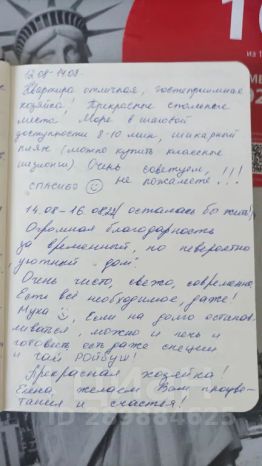 12.08-14.08.
Квартира отличная, гостеприимная
хозяйка! Прекрасные спальные
места. Море в шаговой
доступности 8-10 мин, шикарный
пляж (можно купить классные
шезлонги) Очень советуем, !!!
СПАСИБО не пожалеете...
14.08-16.08.24 осталась бо жить!
Огромная благодарность
за временный, но невероятно
уютный „дом"
Очень чисто, свежо, современно
Есть всё необходимое, даже!
Мука Если на долго останав-
ливаться, можно и печь и
готовить есть даже специи
и чай РОЙБУШ!
Прекрасная хозяйка!
Елена, желаем Вам процве-
тания и счастья!
ID 289884625